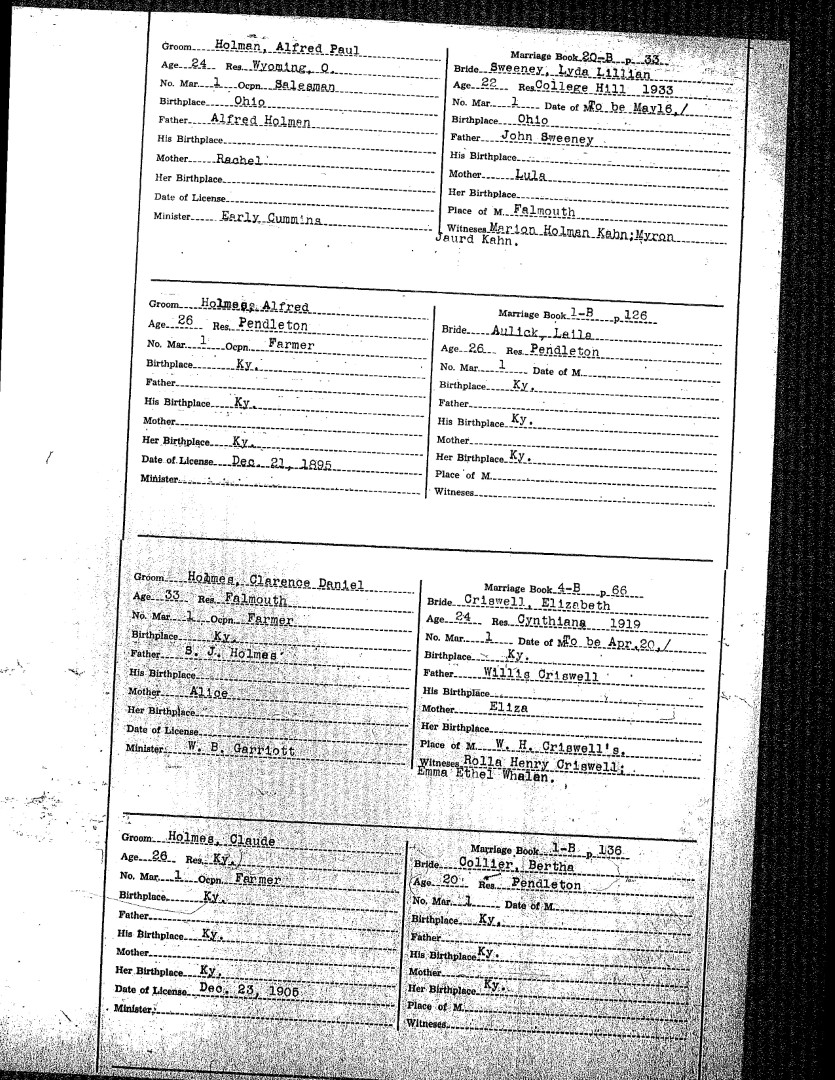 Groom Holman, Alfred Paul
Age 24 Res. Wyoming, O.
No. Mar. 1 Ocpn. Salesman
Birthplace Ohio
Father Alfred Holman
His Birthplace
Mother Rachel
Her Birthplace
Date of License
Minister Early Cummins
Marriage Book 20-B p 33
Bride Sweeney, Lyda Lillian
Age 22 Res College Hill 1933
No. Mar. 1 Date of M To be May16,/
Birthplace Ohio
Father John Sweeney
His Birthplace
Mother Lula
Her Birthplace
Place of M. Falmouth
Witneses Marion Holman Kahn;Myron
Jaurd Kahn.
Groom Holmes, Alfred
Age 26 Res. Pendleton
No. Mar. 1 Ocpn. Farmer
Birthplace Ky.
Father
His Birthplace Ky.
Mother
Her Birthplace Ky.
Date of License Dec. 21, 1895
Minister
Marriage Book 1-B p 126
Bride Aulick, Laila
Age 26 Res. Pendleton
No. Mar. 1 Date of M.
Birthplace Ky.
Father
His Birthplace Ky.
Mother
Her Birthplace Ky.
Place of M.
Witneses
Groom Holmes, Clarence Daniel
Age 33 Res. Falmouth
No. Mar. 1 Ocpn. Farmer
Birthplace Ky.
Father S. J. Holmes
His Birthplace
Mother Alice
Her Birthplace
Date of License
Minister W. B. Garriott
Marriage Book 4-B p 66
Bride Criswell, Elizabeth
Age 24 Res. Cynthiana 1919
No. Mar. 1 Date of M To be Apr.20,/
Birthplace Ky.
Father Willis Criswell
His Birthplace
Mother Eliza
Her Birthplace
Place of M. W. H. Criswell's.
Witneses Rolla Henry Criswell;
Emma Ethel Whalen.
Groom Holmes, Claude
Age 26 Res. Ky.
No. Mar. 1 Ocpn. Farmer
Birthplace Ky.
Father
His Birthplace Ky.
Mother
Her Birthplace Ky.
Date of License Dec. 23, 1905
Minister
Marriage Book 1-B p 136
Bride Collier, Bertha
Age 20 Res. Pendleton
No. Mar. 1 Date of M.
Birthplace Ky.
Father
His Birthplace Ky.
Mother
Her Birthplace Ky.
Place of M.
Witneses